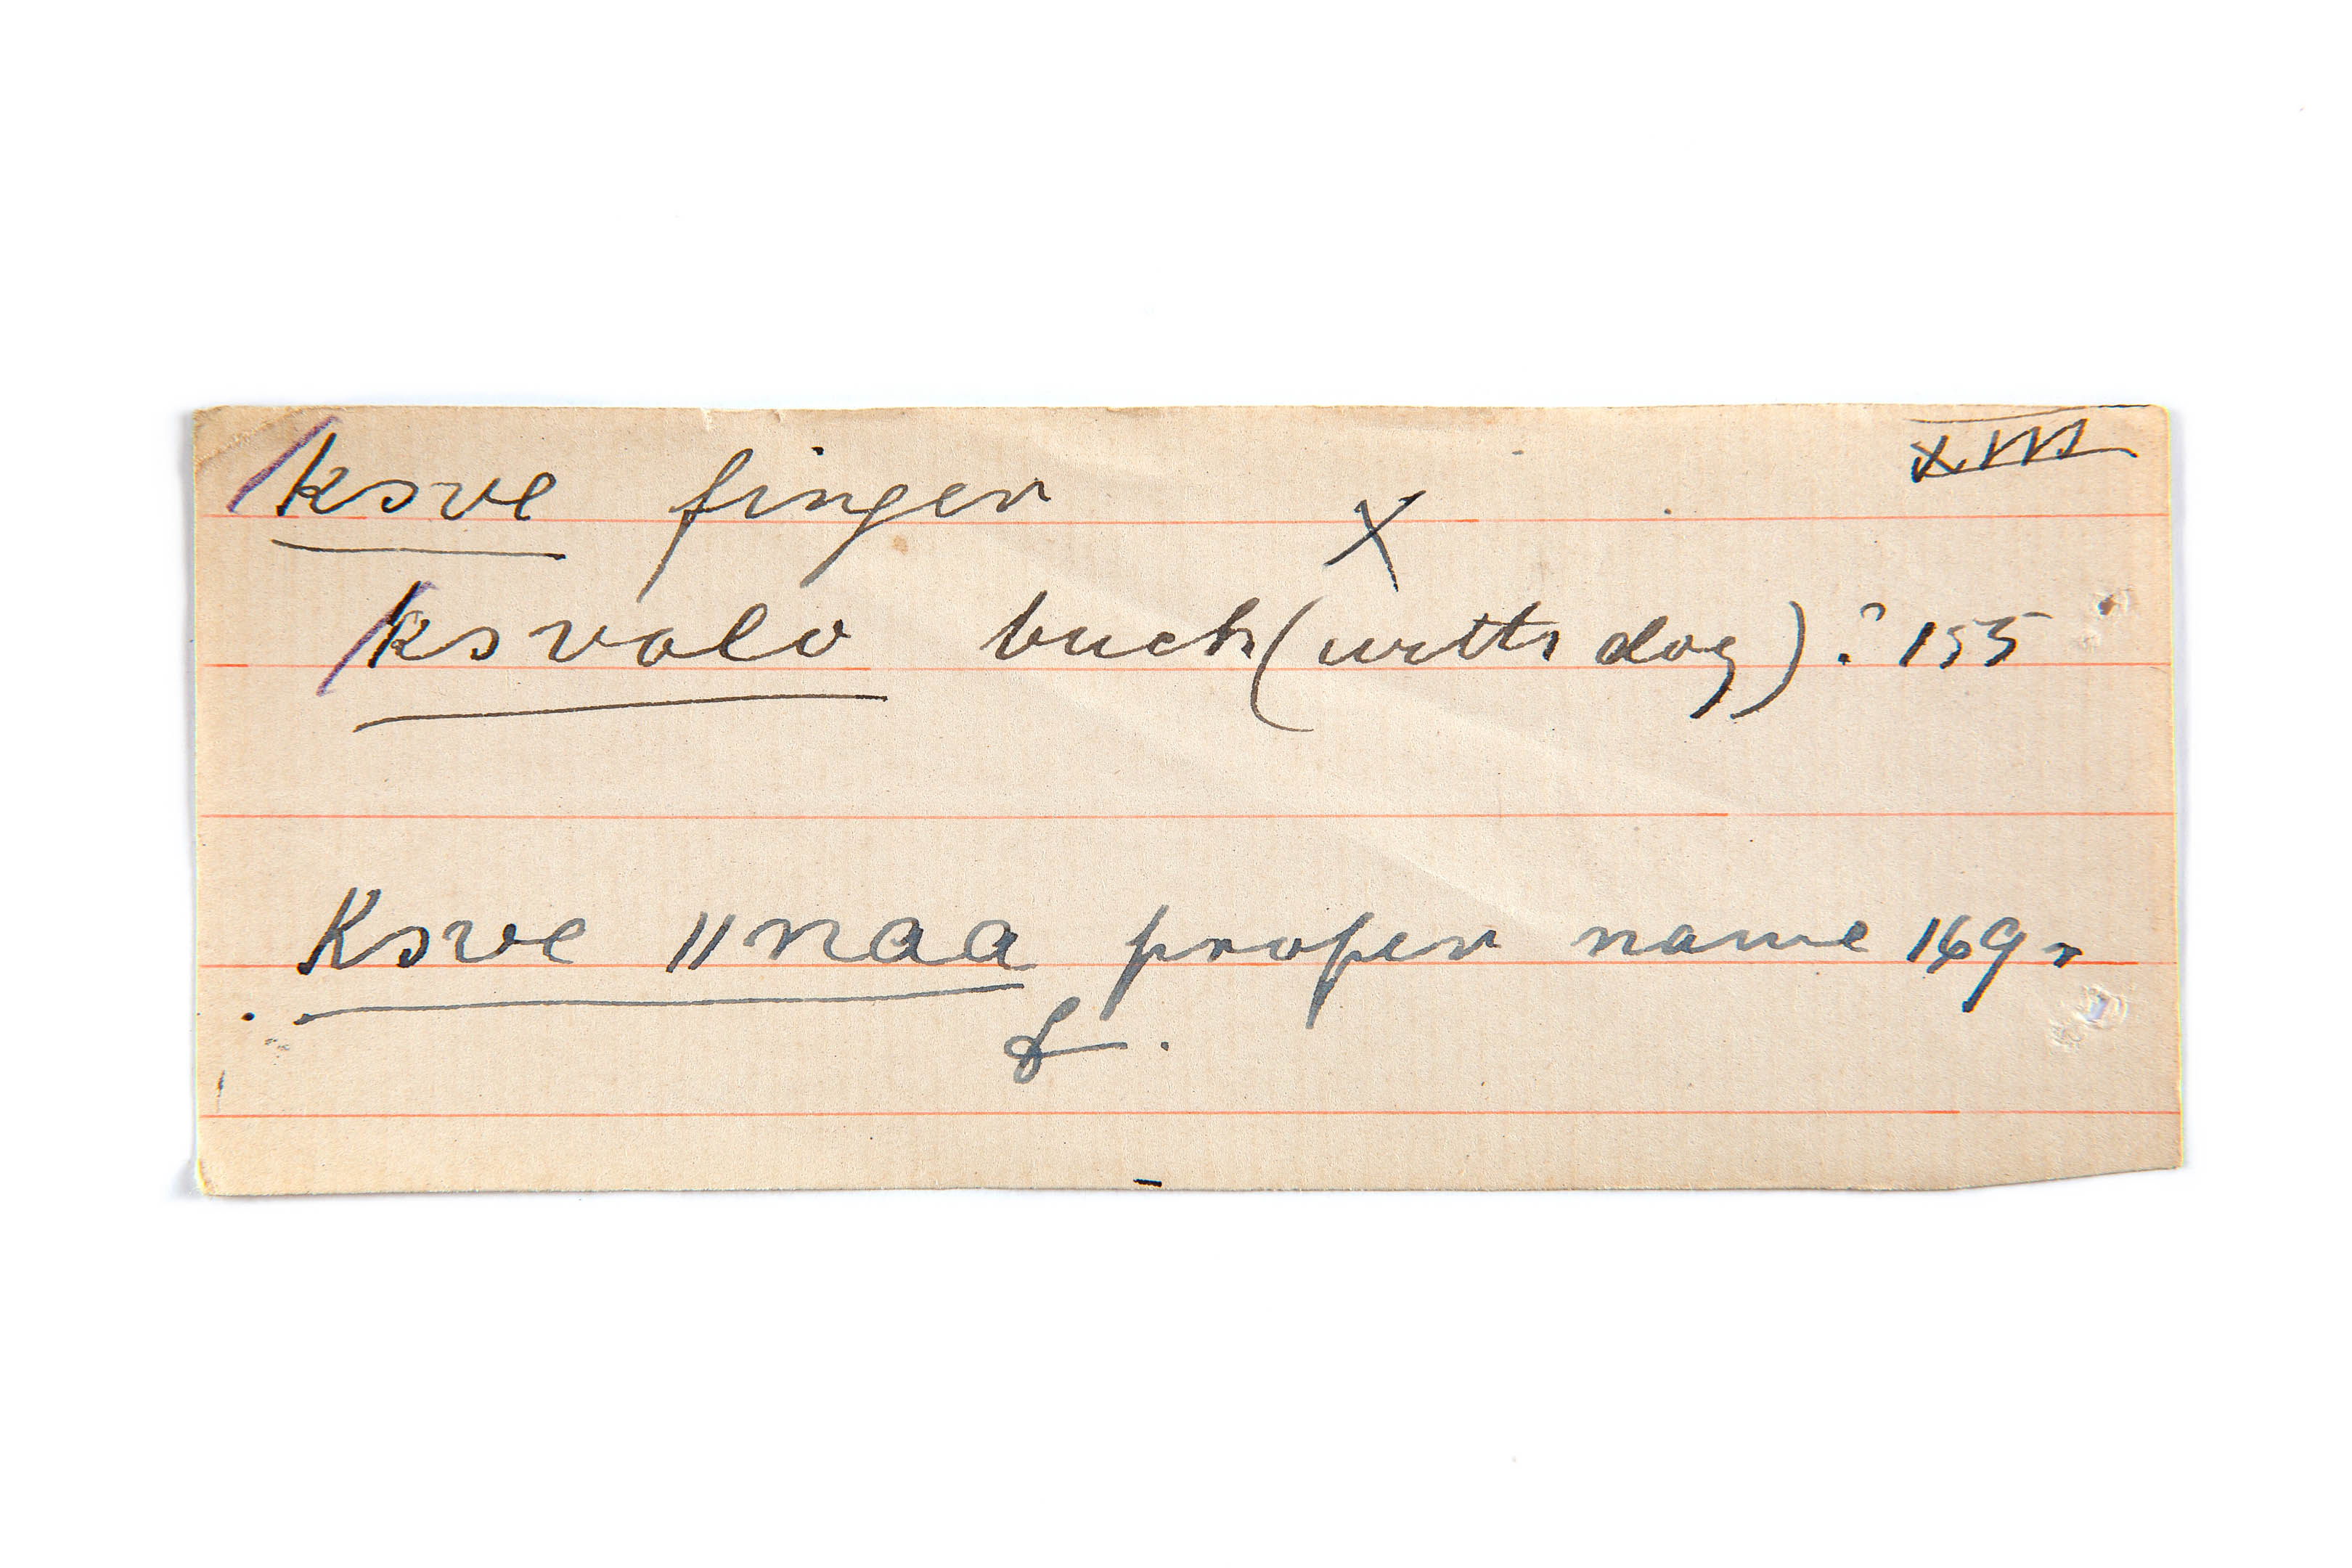 XIII
/ksve finger
X
/ksvolo buck (with dog) ? 155
Ksve ǁnaa proper name 169 r
f.